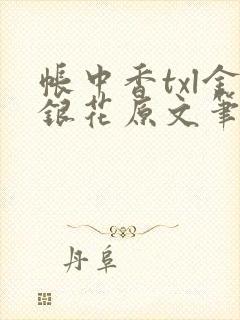 帐中香txl金
银花原文筆
丹阜